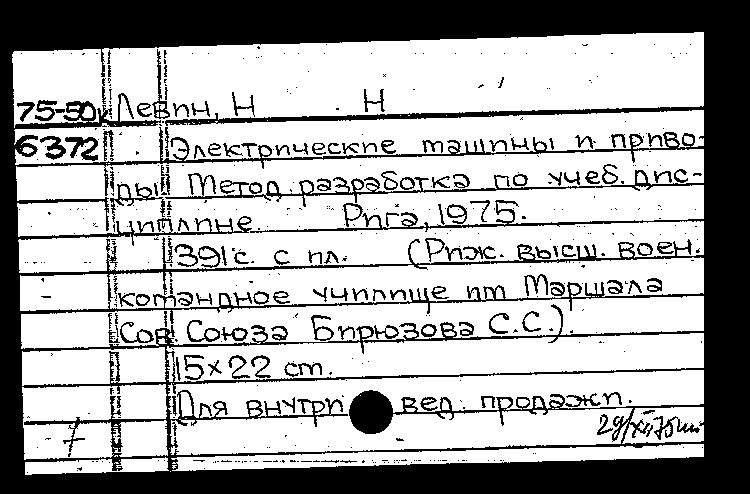 75-50к Левин, Н Н
6372 Электрические машины и приво-
ды Метод. разработка по учеб. дис-
циплине Рига, 1975.
391 с. с ил. (Риж. высш. воен.
командное училище им Маршала
Сов Союза Бирюзова С.С.).
15×22 cm.
Для внутри вед. продажи.
7 29/XII 75